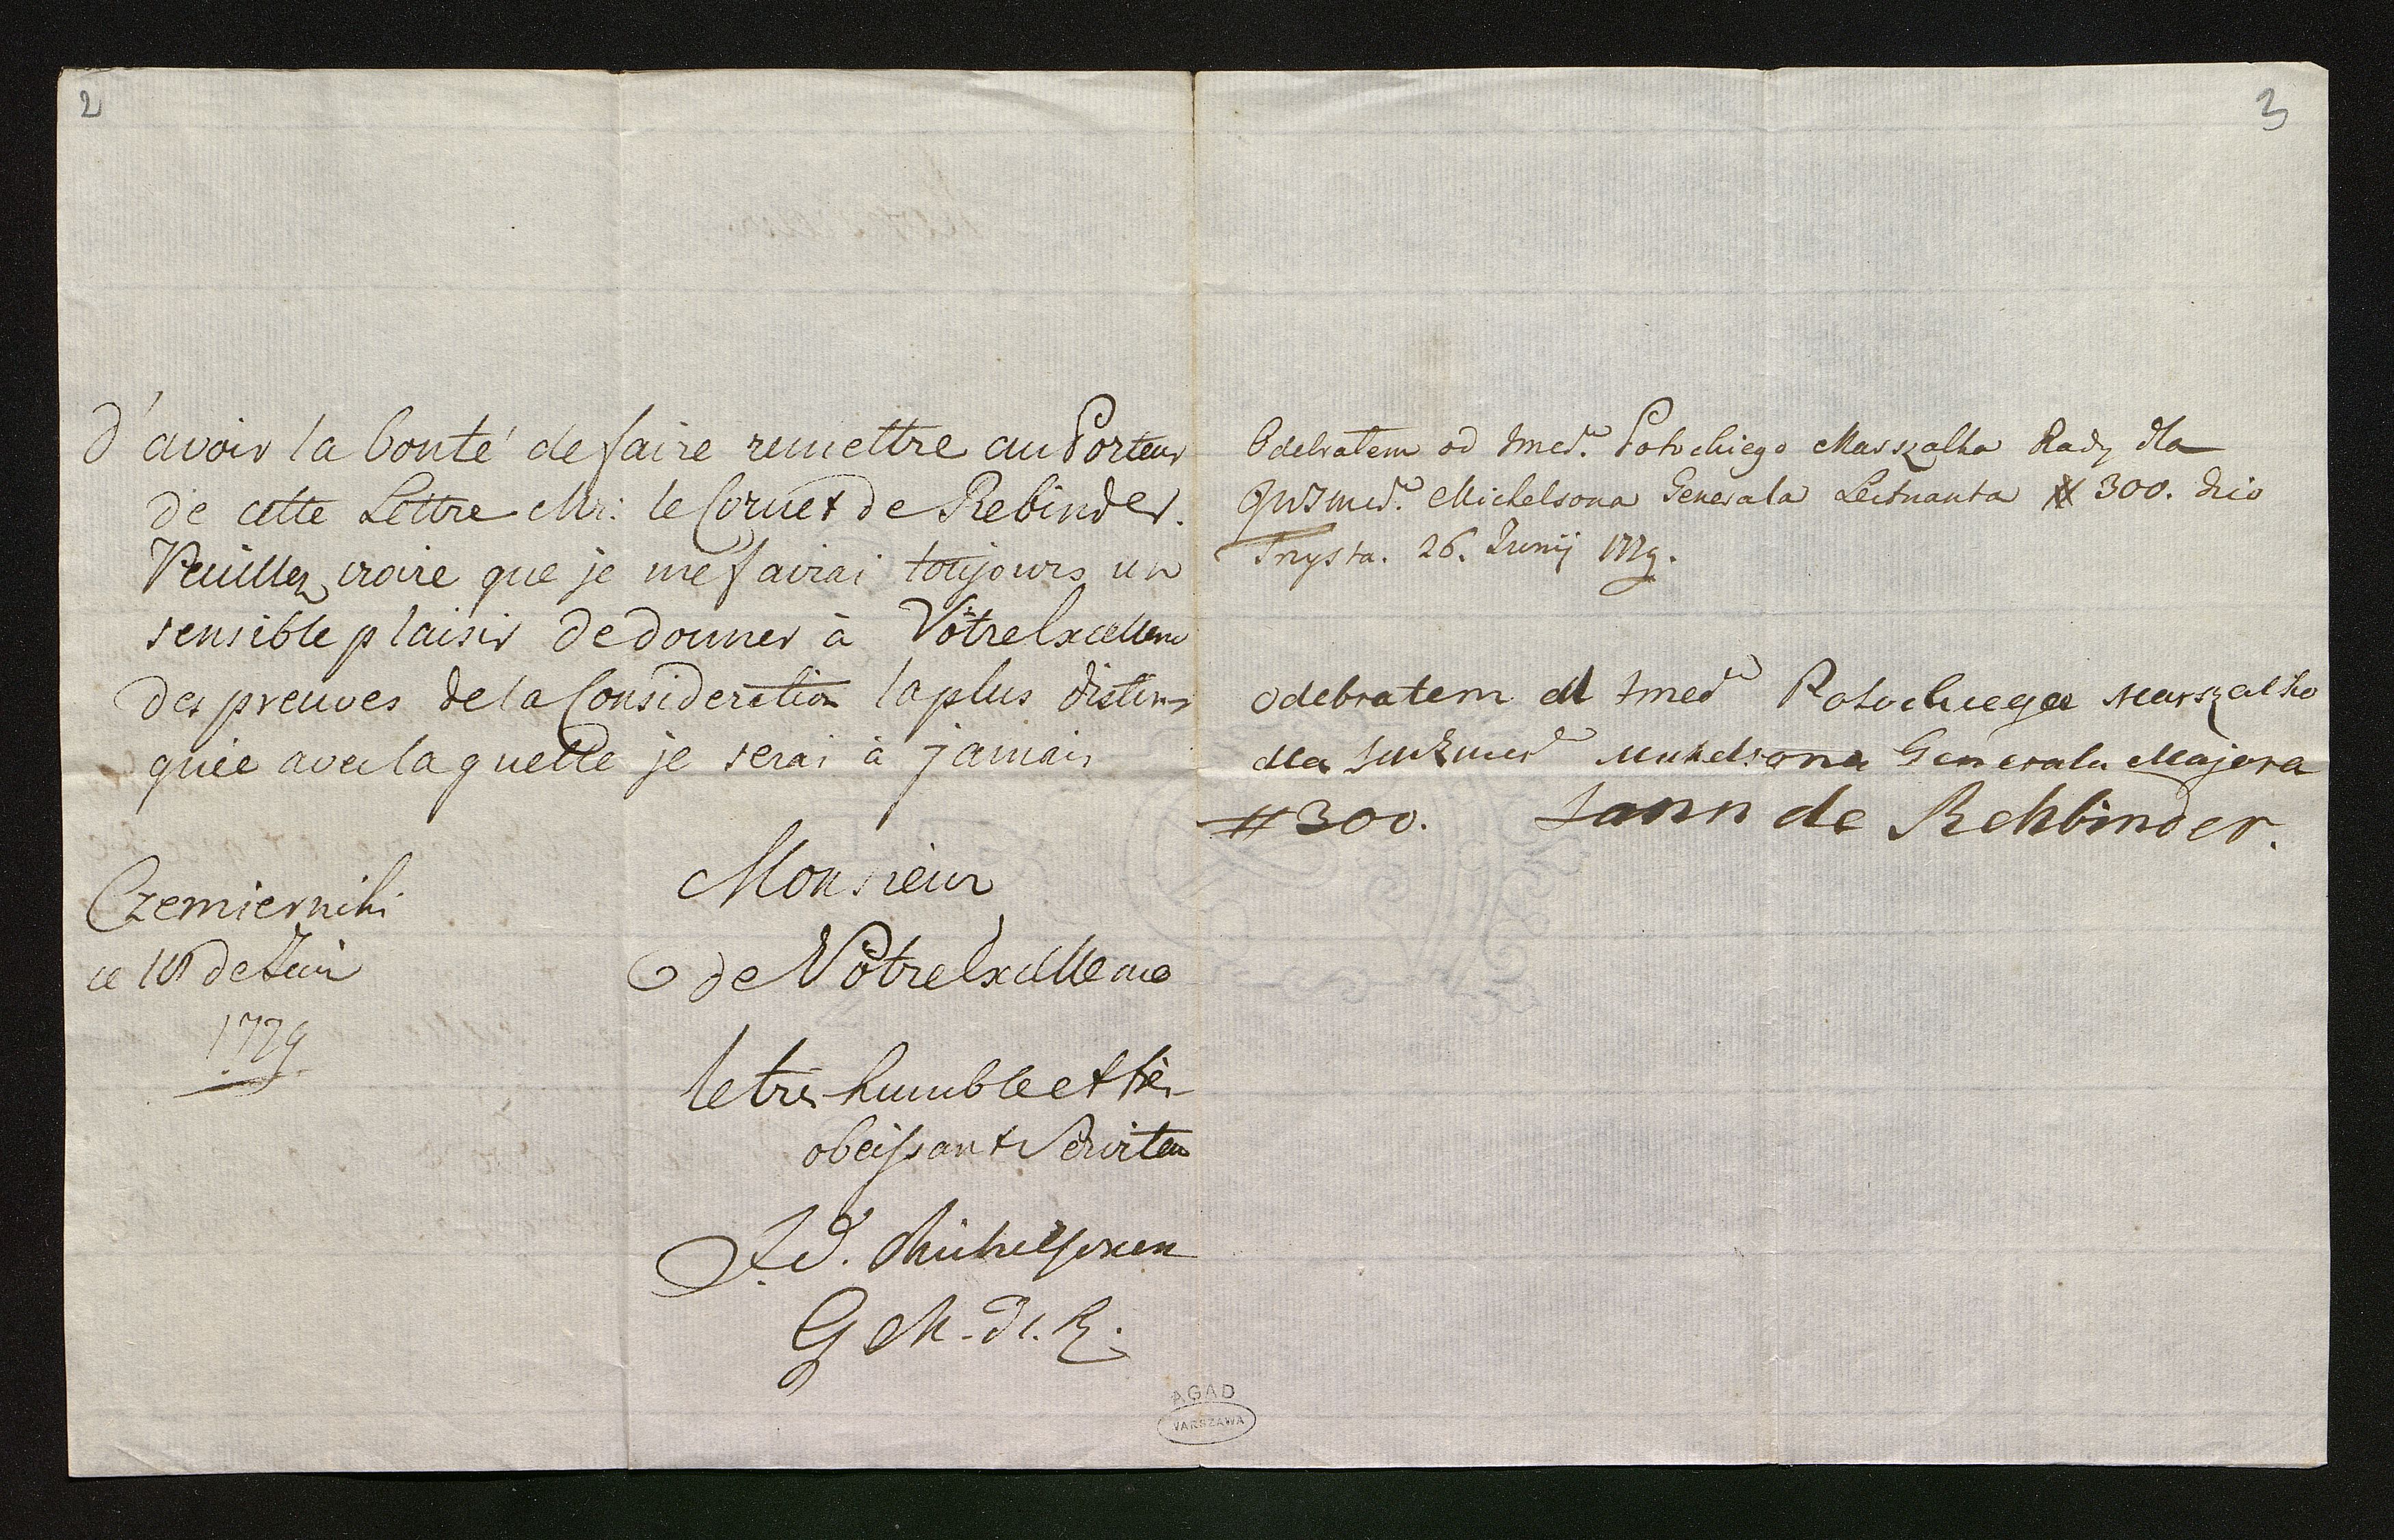 2
d'avoir la bonté de faire remettre au Porteur
de cette Lettre Mr: le Cornet de Rebinder.
Veuillez croire que je me fairai toujours un
sensible plaisir de donner à Vôtre Excellence
des preuves de la Consideration la plus distin-
quée avec laquelle je serai à jamais
Monsieur
de Vôtre Excellence
le tres humble et très
obeissant Serviteur
J. v. Michelsonen
G M.
Czemierniki
ce de Juin
1779
3
Odebrałem od Jmci Potockiego Marszałka Rady dla
Michelsona Generała Leitnanta # 300. dnio
26. Junij 1779.
odebratem Jmci Potockiego Marszalko
dla Generalu Majora
# 300. Jann de Rehbinder.
AGAD
WARSZAWA